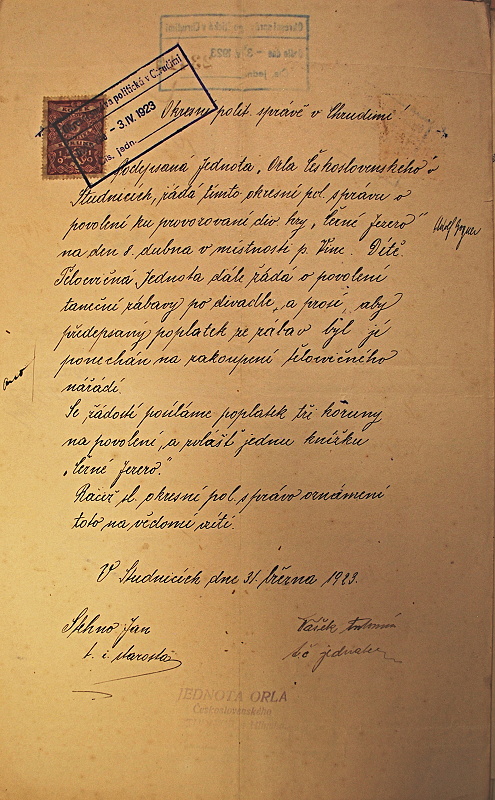 Okresní polit. správě v Chrudimi
3. IV. 1923
Podepsaná Jednota „Orla Československého"
Studnicích, žádá tímto okresní pol. správu o
povolení ku provozování div. hry „Černé Jezero"
na den 8. dubna v místnosti p. Vinc. Dítě.
Tělocvičná Jednota dále žádá o povolení
taneční zábavy po divadle, a prosí, aby
předepsaný poplatek ze zábav byl jí
ponechán na zakoupení tělocvičného
nářadí.
Se žádostí posíláme poplatek tři koruny
na povolení, a zvlášť jednu knížku
„Černé Jezero."
Račiž sl. okresní pol. správo oznámení
toto na vědomí vzíti.
V Studnicích dne 31. března 1923.
Stehno Jan
t. č. starosta
Vašek Antonín
t. č. jednatel
JEDNOTA ORLA
Československého